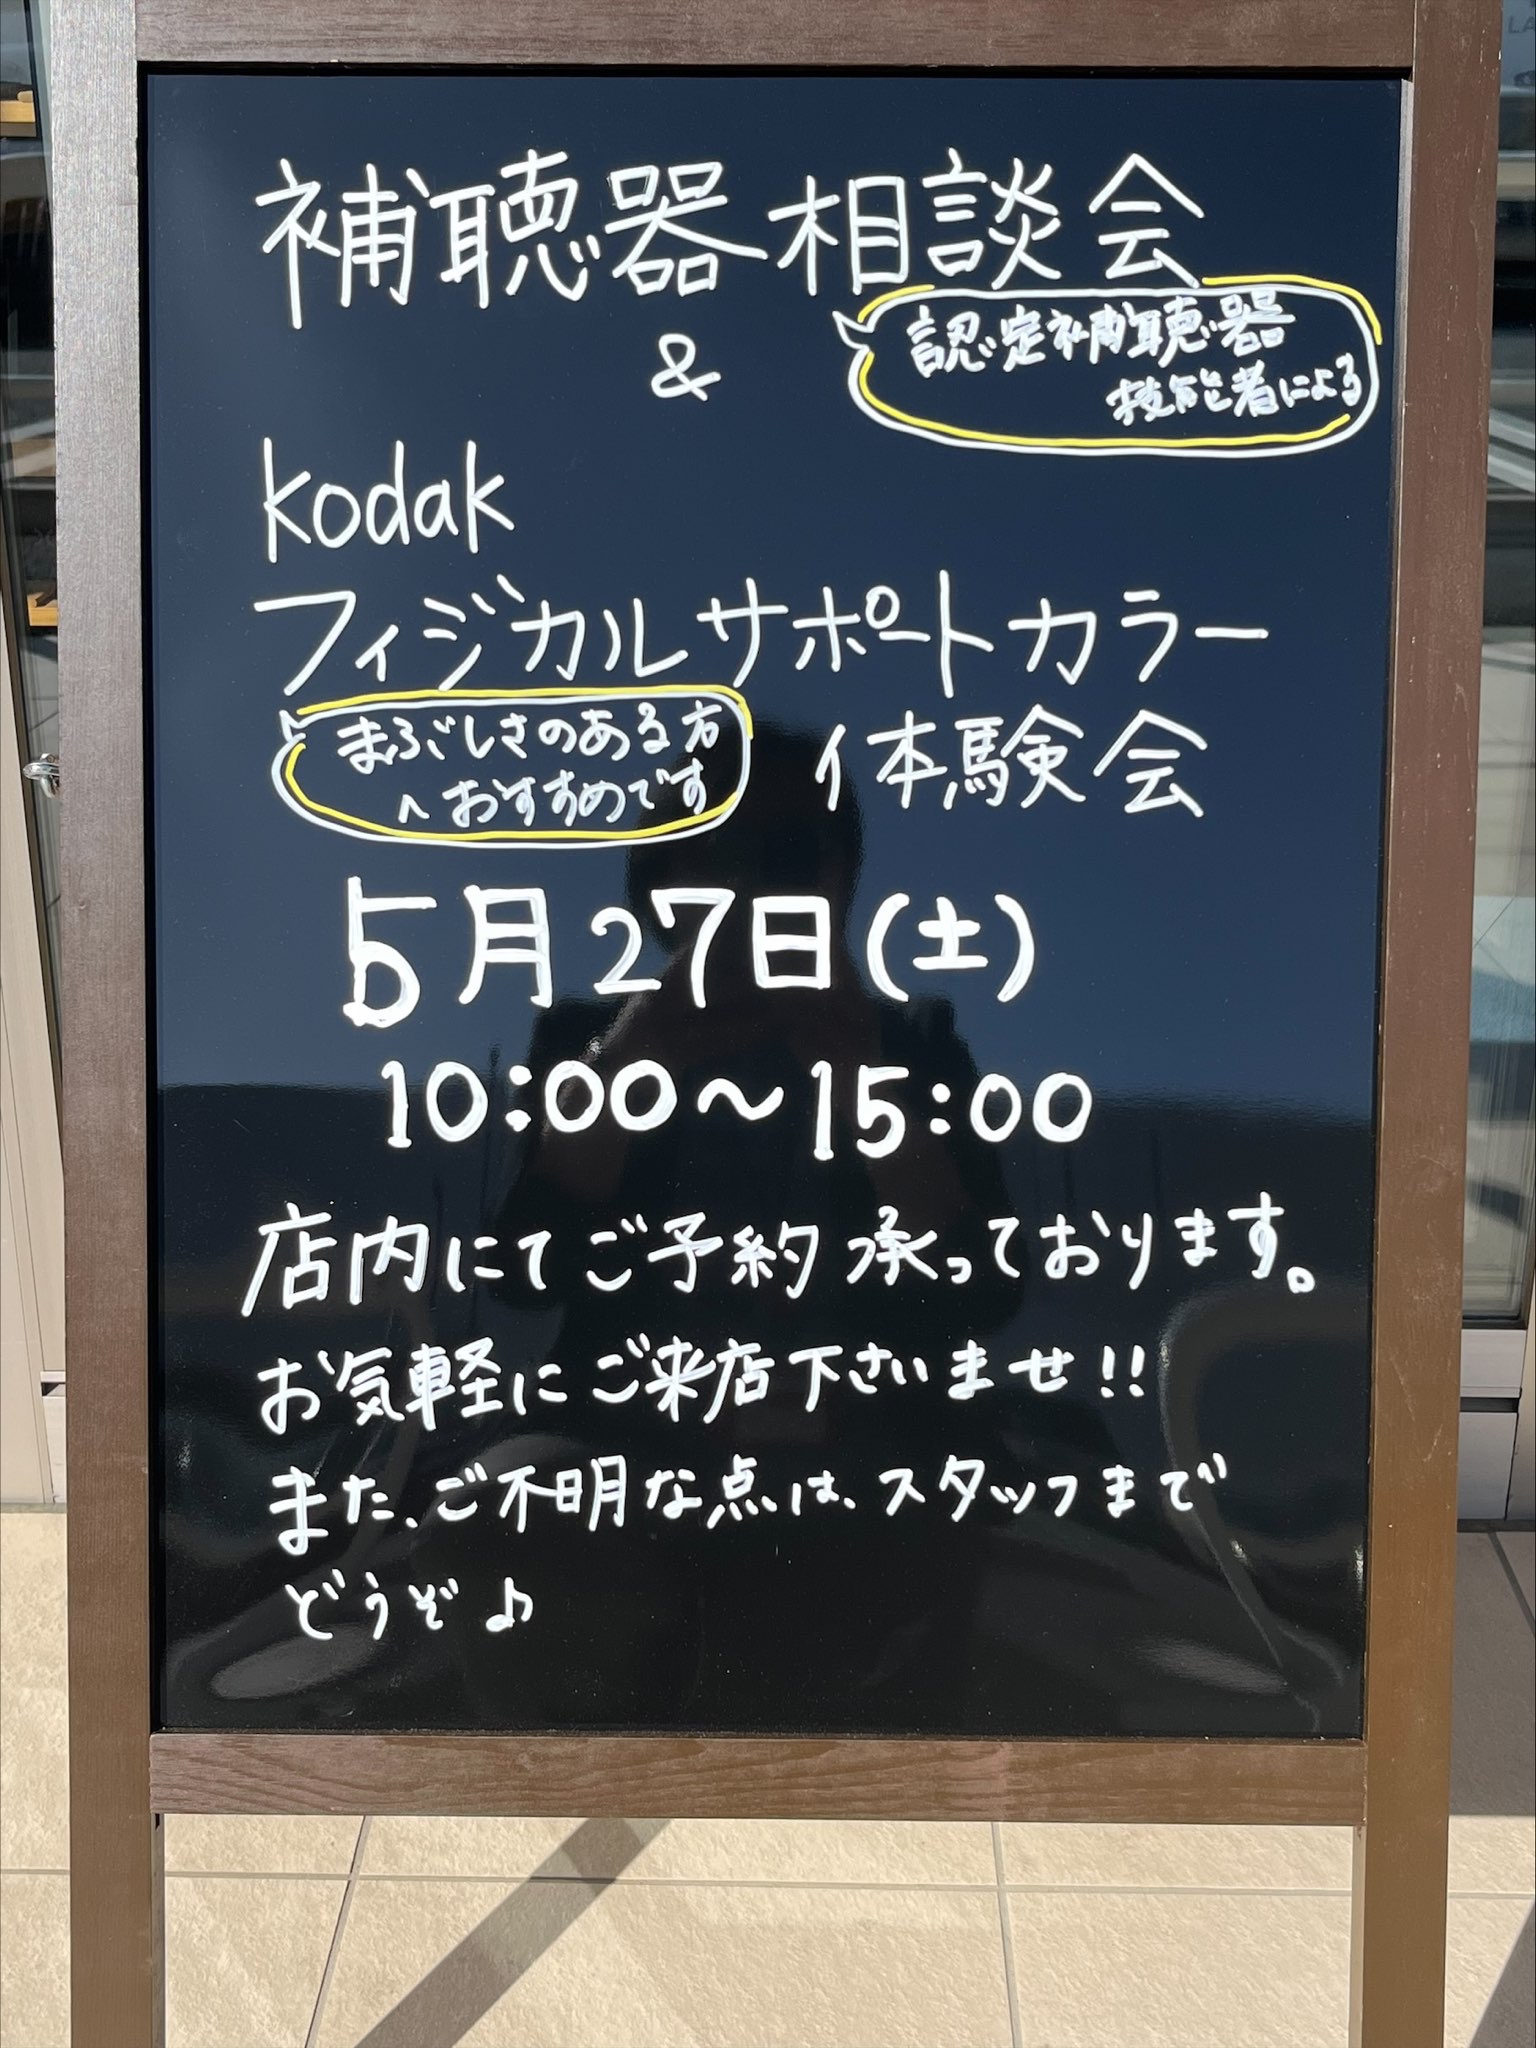 補聴器相談会
認定補聴器
技能者による
&
kodak
フィジカルサポートカラー
体験会
まぶしさのある方
へおすすめです
5月27日(土)
10:00〜15:00
店内にてご予約承っております。
お気軽にご来店下さいませ!!
また、ご不明な点は、スタッフまで
どうぞ♪